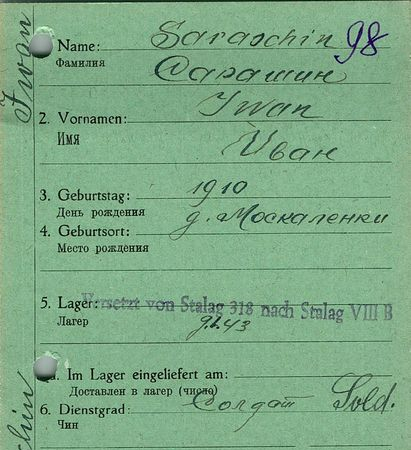 Name: Saraschin 98
Фамилия Сарашин
2. Vornamen: Iwan
Имя Иван
3. Geburtstag: 1910
День рождения д. Москаленки
4. Geburtsort:
Место рождения
5. Lager: Versetzt von Stalag 318 nach Stalag VIII B
Лагер 9.2.43
a. Im Lager eingeliefert am:
Доставлен в лагер (число)
6. Dienstgrad: Солдат Sold.
Чин
Iwan
chin